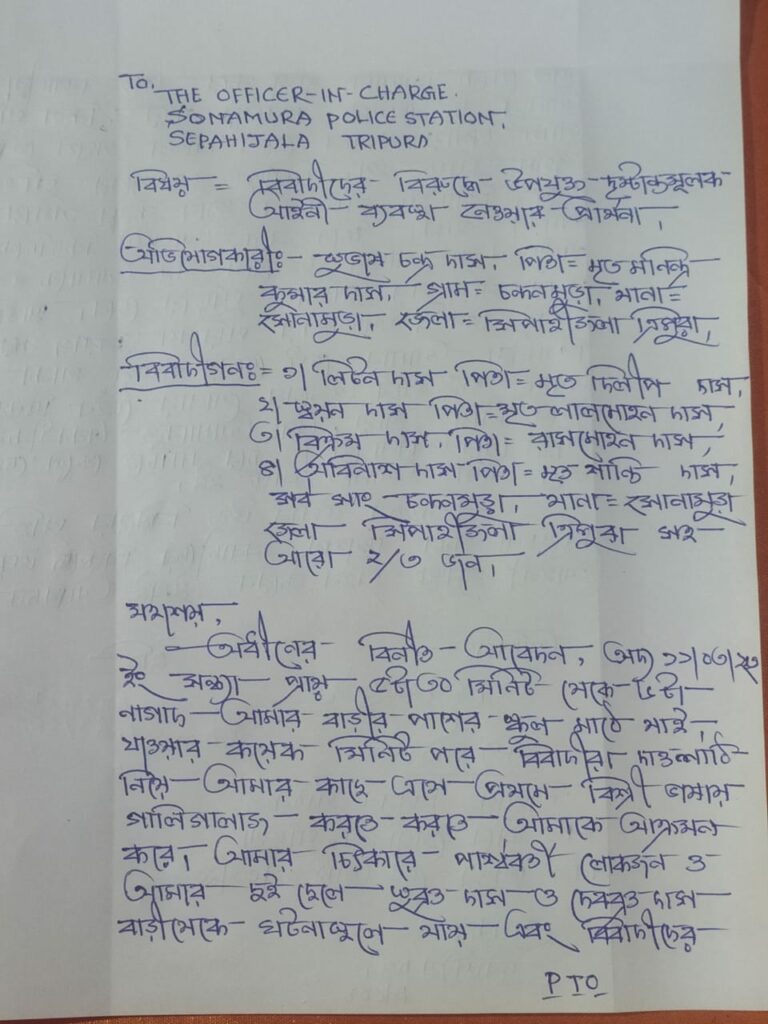 TO,
THE OFFICER-IN-CHARGE.
SONAMURA POLICE STATION.
SEPAHIJALA TRIPURA
বিষয় = বিবাদীদের বিরুদ্ধে উপযুক্ত দৃষ্টান্তমূলক
আইনী ব্যবস্থা নেওয়ার প্রার্থনা,
অভিযোগকারীঃ- চন্দ্র দাস, পিতা= মৃত মনিন্দ্র
কুমার দাস, গ্রাম= থানা=
সোনামুড়া, জেলা= সিপাহীজলা ত্রিপুরা,
বিবাদীগনঃ= ১। লিটন দাস পিতা= মৃত দিলীপ দাস,
২। সুমন দাস পিতা= মৃত লালমোহন দাস,
৩। বিক্রম দাস, পিতা= রাসমোহন দাস,
৪। অবিনাশ দাস পিতা= মৃত শান্তি দাস,
সর্ব সাং থানা= সোনামুড়া
জেলা সিপাহীজলা ত্রিপুরা সহ
আরো ২/৩ জন,
মহাশয়,
অধীনের বিনীত আবেদন, অদ্য ১১/০৩/২৩
ইং সন্ধ্যা প্রায় ৫টা ৩০ মিনিট থেকে ৬টা
নাগাদ আমার বাড়ীর পাশের স্কুল মাঠে যাই,
যাওয়ার কয়েক মিনিট পরে বিবাদীরা দাওলাঠি
নিয়ে আমার কাছে এসে প্রথমে বিশ্রী ভাষায়
গালিগালাজ করতে করতে আমাকে আক্রমন
করে, আমার চিৎকারে পার্শ্ববর্তী লোকজন ও
আমার দুই ছেলে সুব্রত দাস ও দেবব্রত দাস
বাড়ী থেকে ঘটনাস্থলে যায় এবং বিবাদীদের
P T O